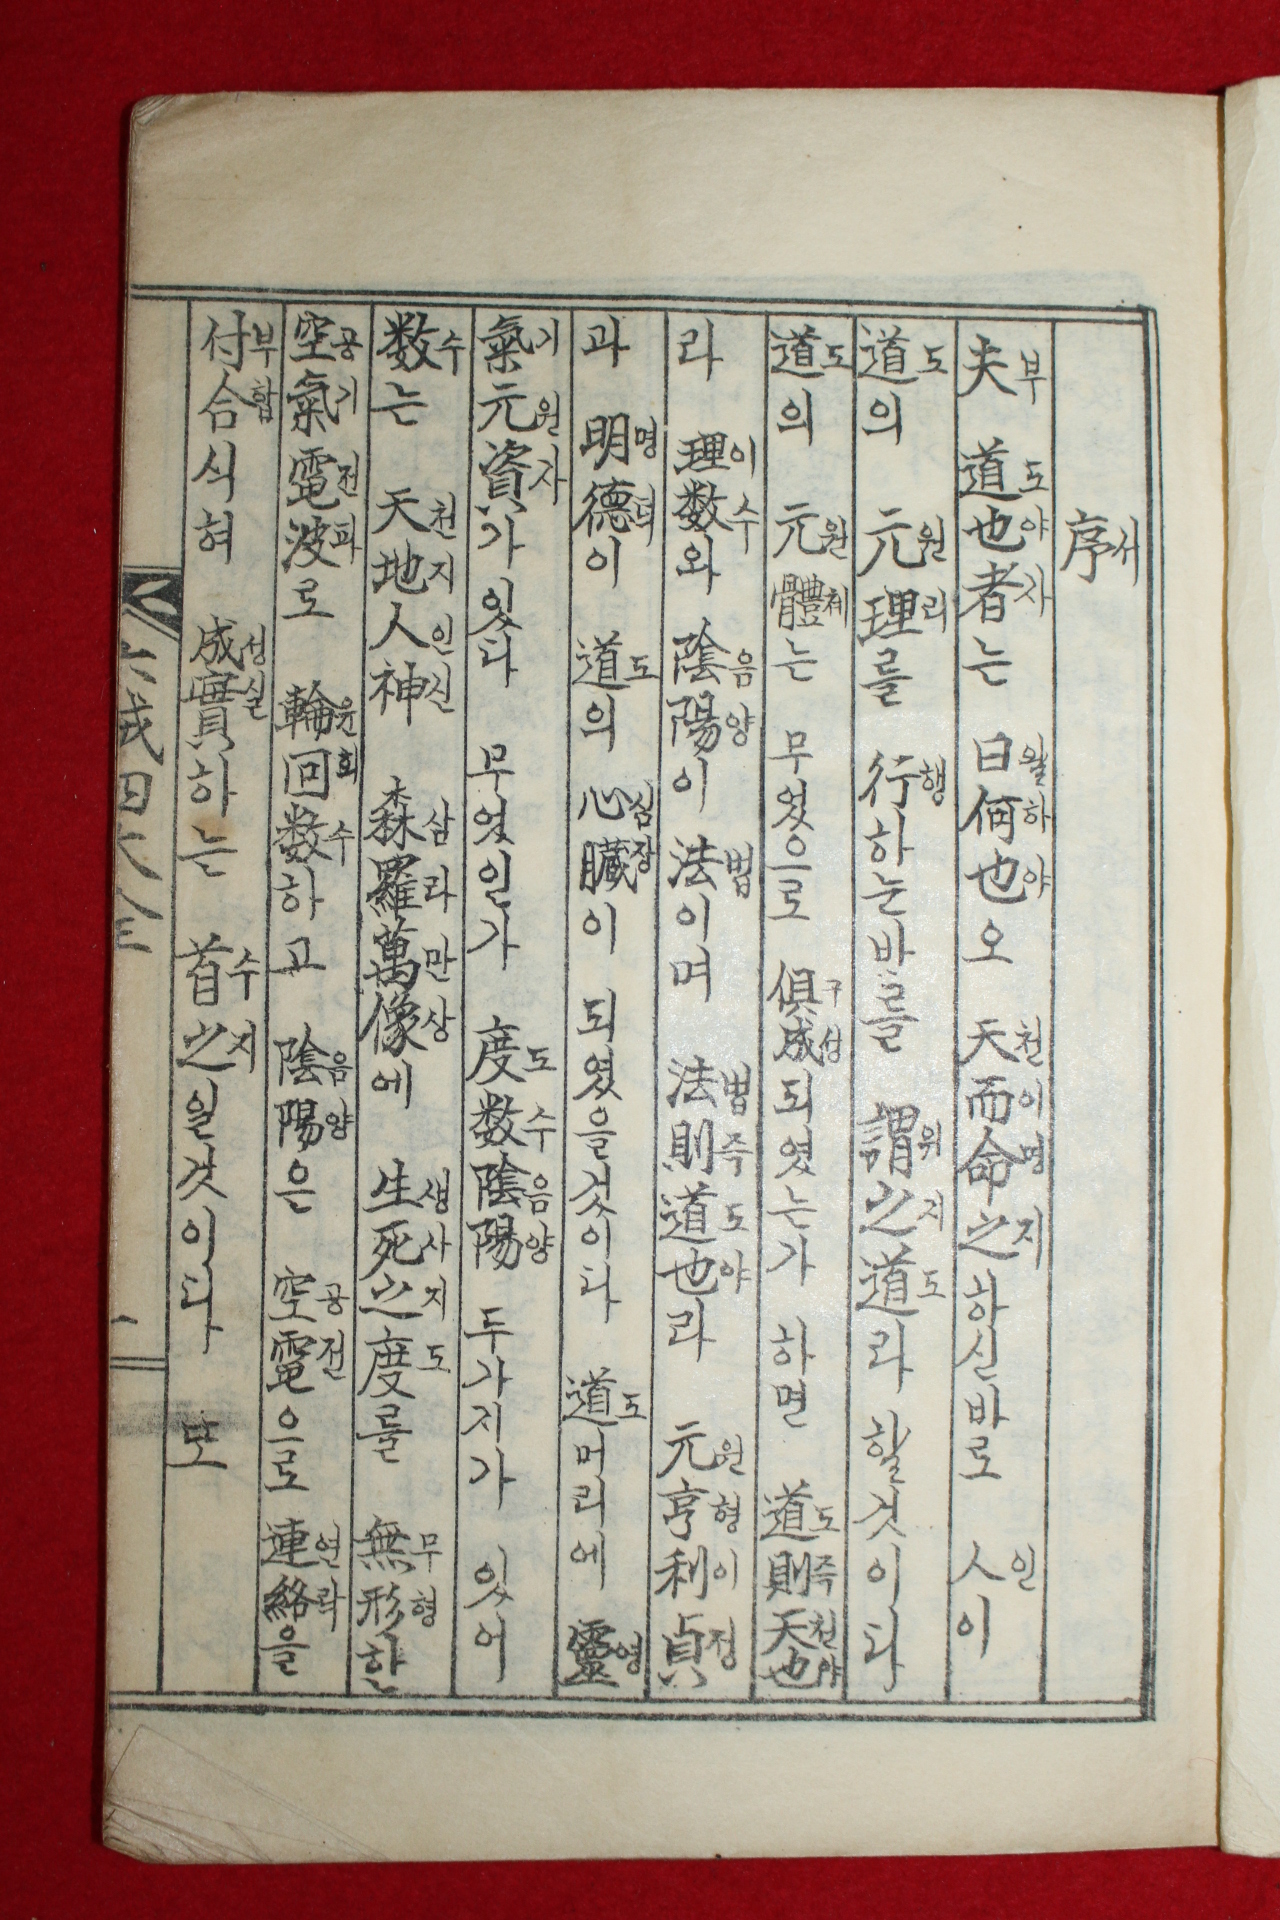 序서
夫부 道도也야者자는 曰왈何하也야오 天천而이命명之지하신바로 人인이
道도의 元원理리를 行행하는바를 謂위之지道도라 할것이다
道도의 元원體체는 무었으로 俱구成성되였는가 하면 道도則즉天천也야
라 理이数수와 陰음陽양이 法법이며 法법則즉道도也야라 元원亨형利이貞정
과 明명德덕이 道도의 心심臟장이 되였을것이다 道도머리에 靈영
氣기元원資자가 있다 무었일가 度도数수陰음陽양 두가지가 있어
数수는 天천地지人인神신 森삼羅라萬만像상에 生생死사之지度도를 無무形형한
空공氣기電전波파로 輪윤回회数수하고 陰음陽양은 空공電전으로 連연絡락을
付부合합식혀 成성實실하는 首수之지일것이다 또